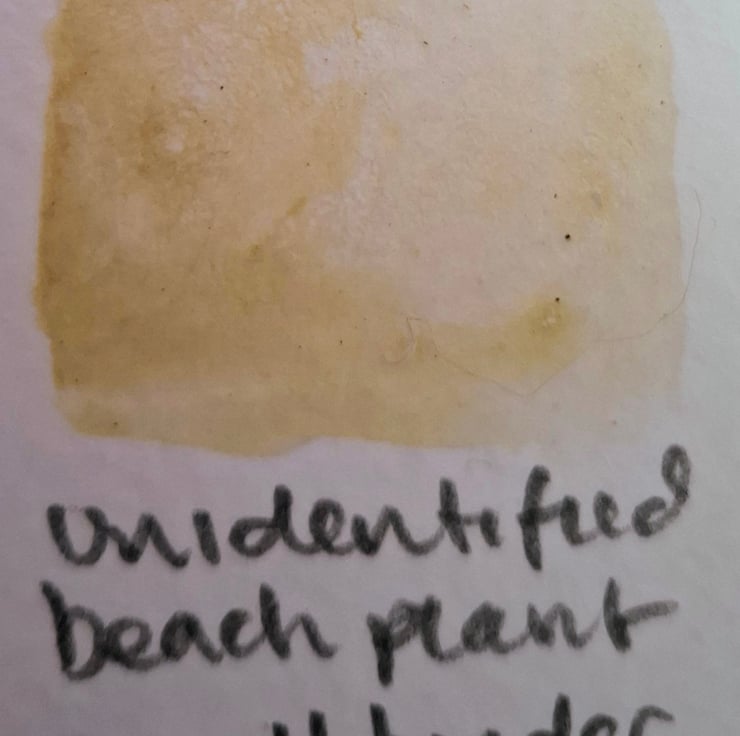 unidentified
beach plant